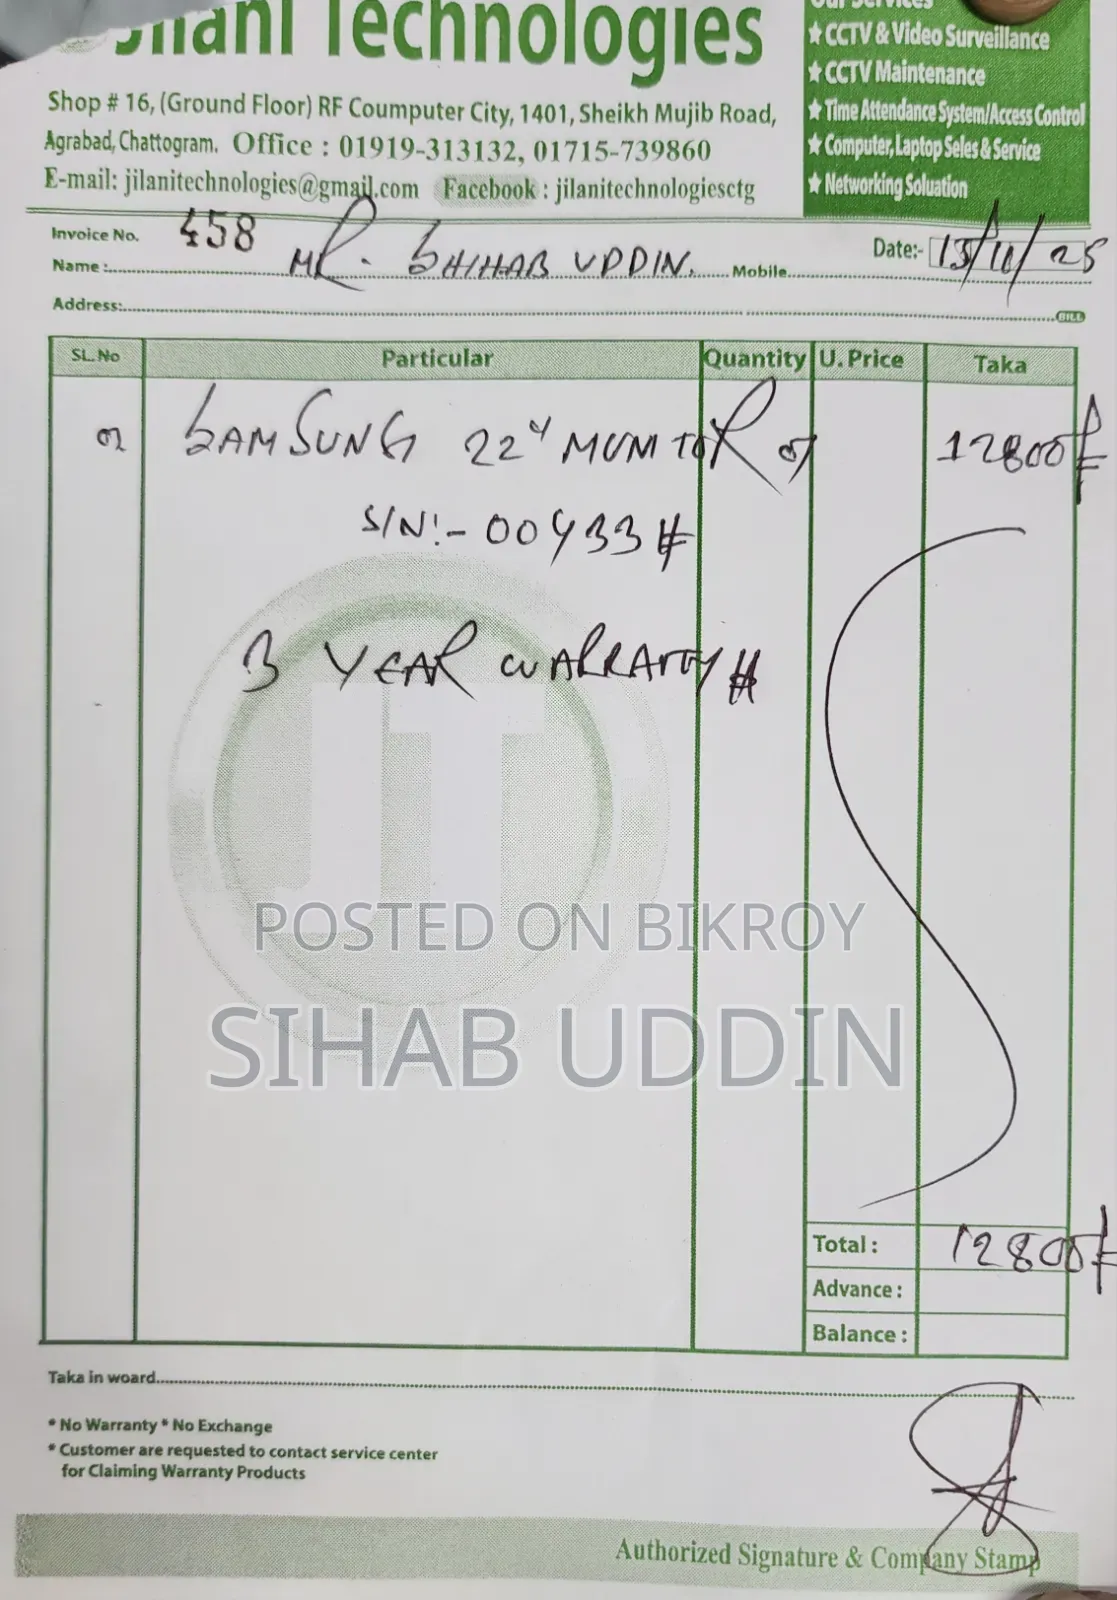 Jilani Technologies
Our Services
★ CCTV & Video Surveillance
★ CCTV Maintenance
★ Time Attendance System/Access Control
★ Computer, Laptop Seles & Service
★ Networking Soluation
Shop # 16, (Ground Floor) RF Coumputer City, 1401, Sheikh Mujib Road,
Agrabad, Chattogram. Office : 01919-313132, 01715-739860
E-mail: jilanitechnologies@gmail.com Facebook : jilanitechnologiesctg
Invoice No. 458 Date:- 13/11/25
Name : MR. SHIHAB UDDIN. Mobile
Address: BILL
SL.No Particular Quantity U. Price Taka
01 SAMSUNG 22" MONITOR 01 12800/=
S/N:- 00433 #
3 YEAR WARRANTY #
JT
POSTED ON BIKROY
SIHAB UDDIN
Total : 12800/=
Advance :
Balance :
Taka in woard
* No Warranty * No Exchange
* Customer are requested to contact service center
for Claiming Warranty Products
Authorized Signature & Company Stamp